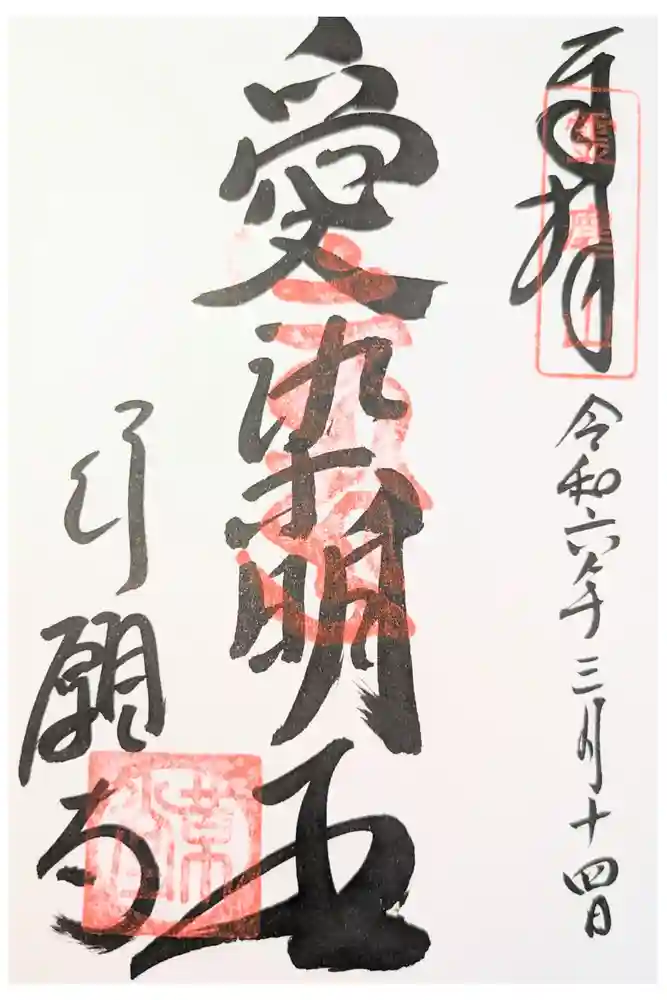 奉拝
令和六年三月十四日
愛染明王
行願寺